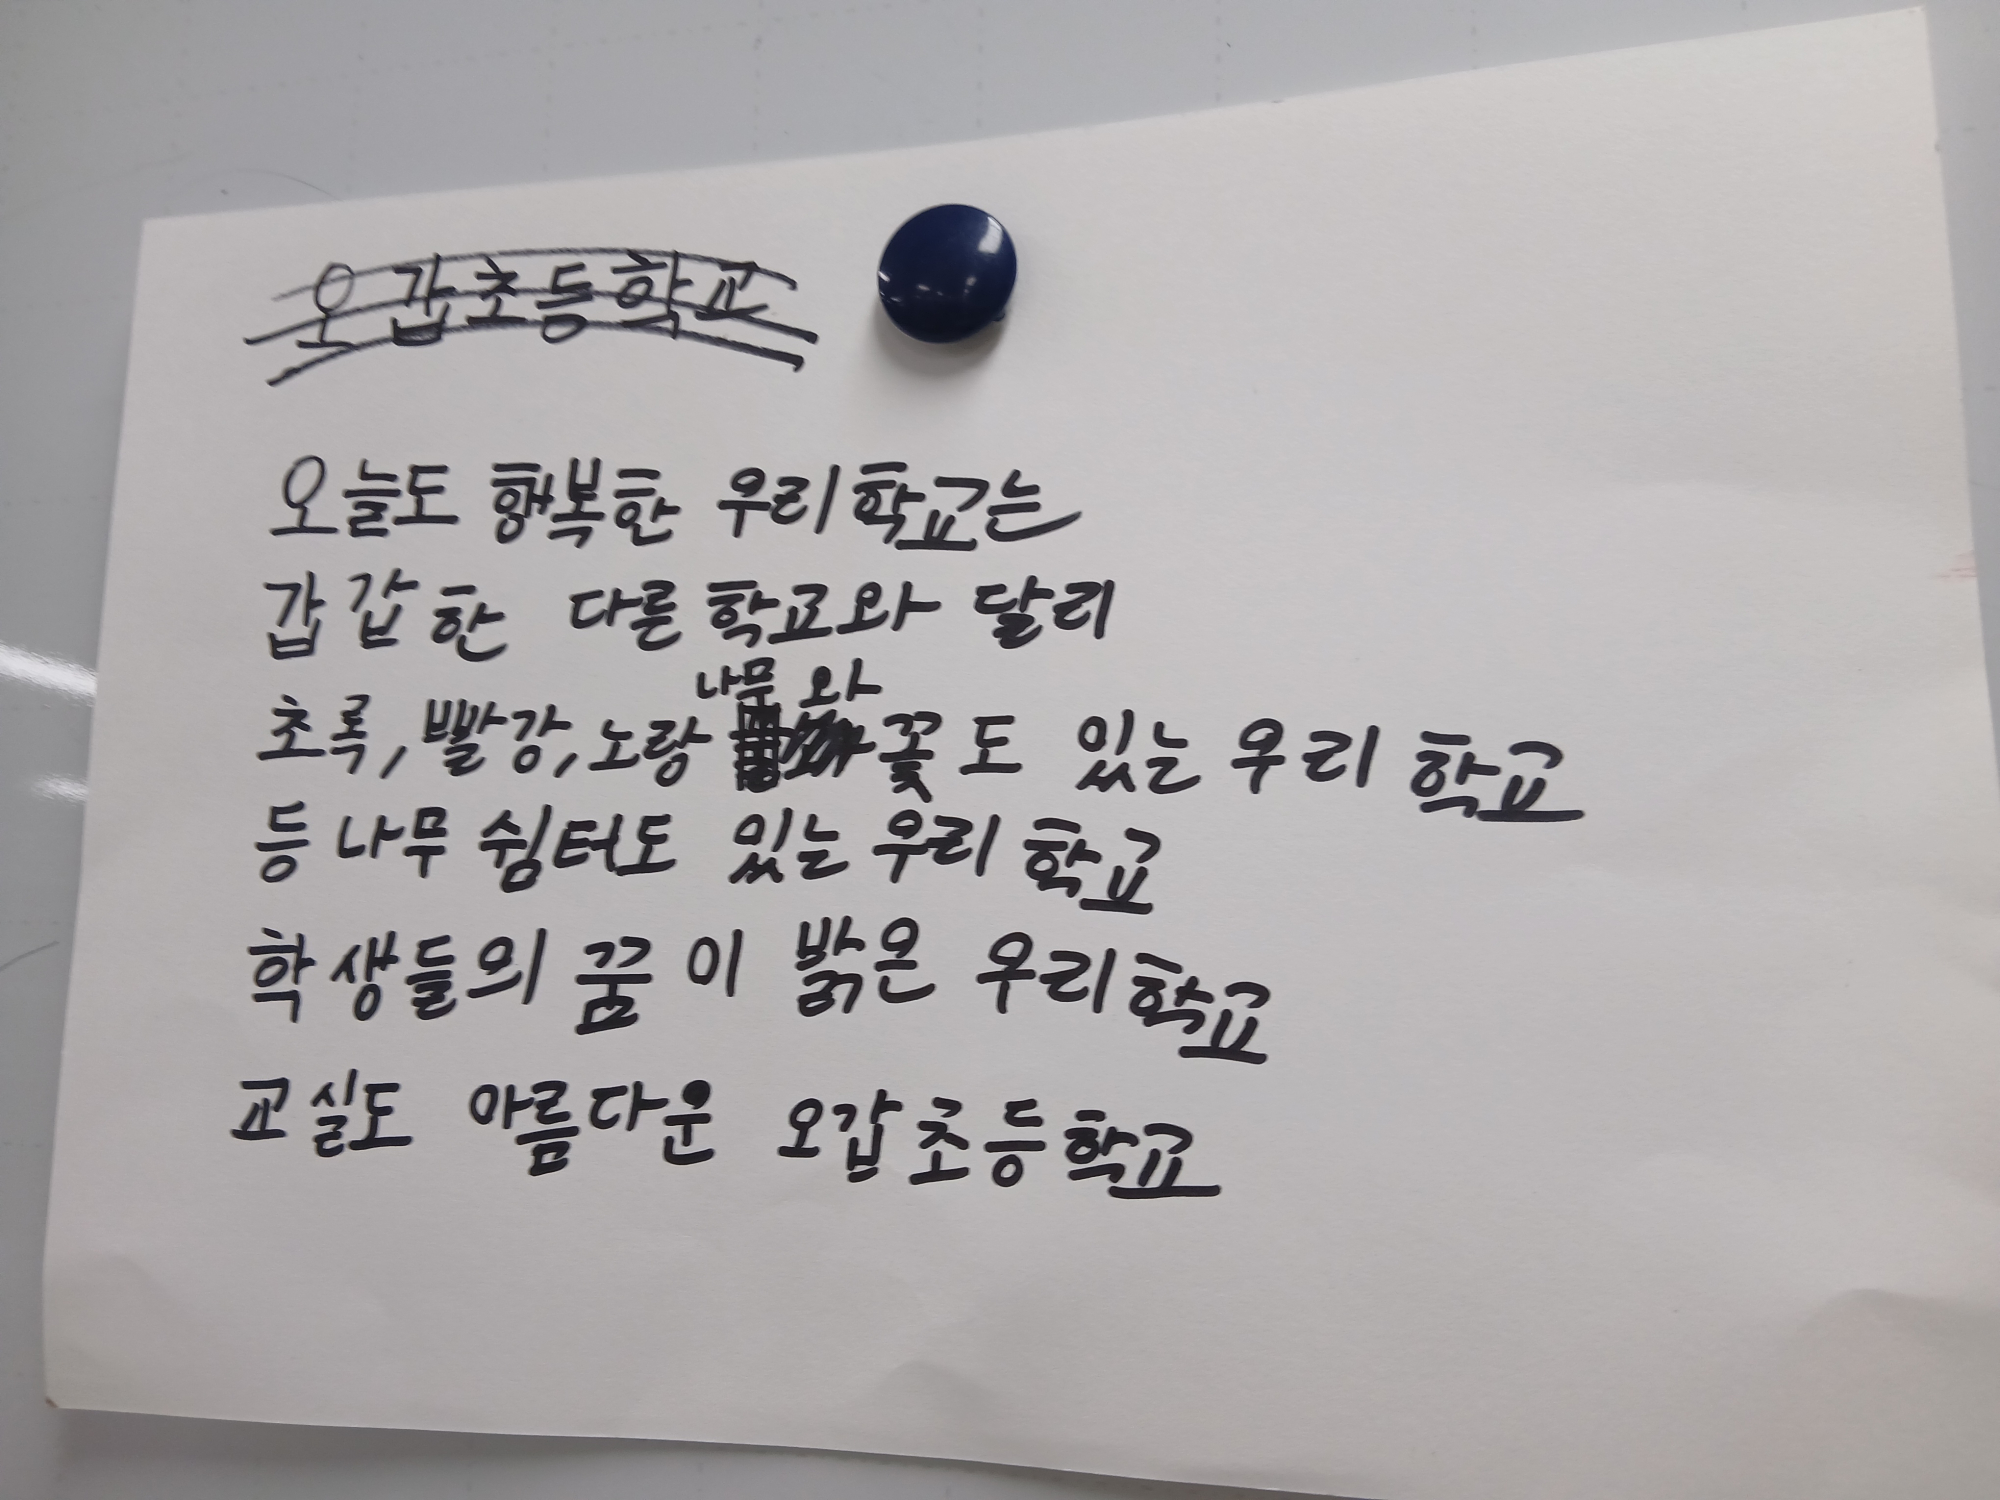 오갑초등학교
오늘도 행복한 우리학교는
갑갑한 다른학교와 달리
초록, 빨강, 노랑 나무와 꽃도 있는 우리 학교
등나무 쉼터도 있는 우리 학교
학생들의 꿈이 밝은 우리학교
교실도 아름다운 오갑초등학교